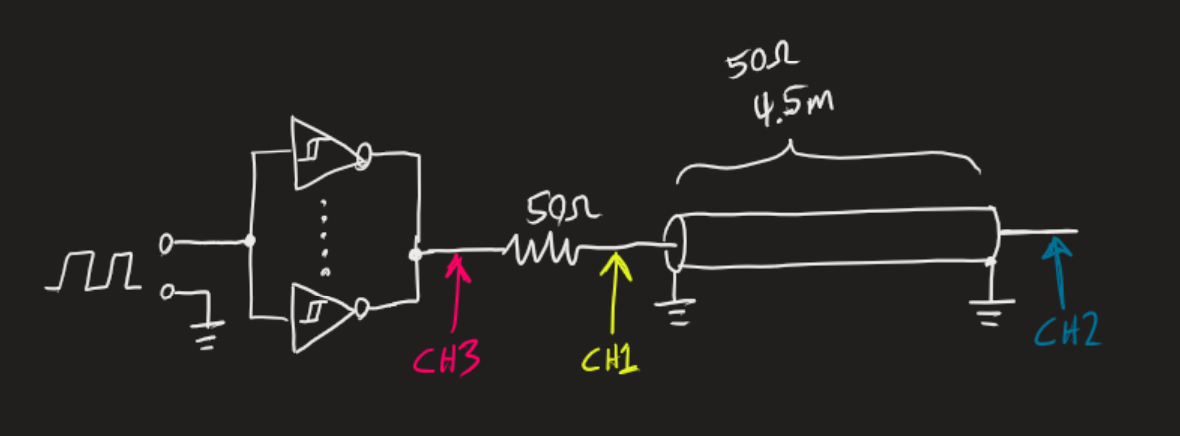 50Ω
4.5m
50Ω
CH3
CH1
CH2